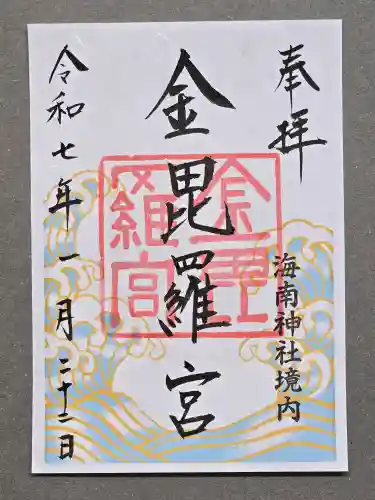 奉拝
海南神社境内
金毘羅宮
金毘羅宮
令和七年一月二十二日